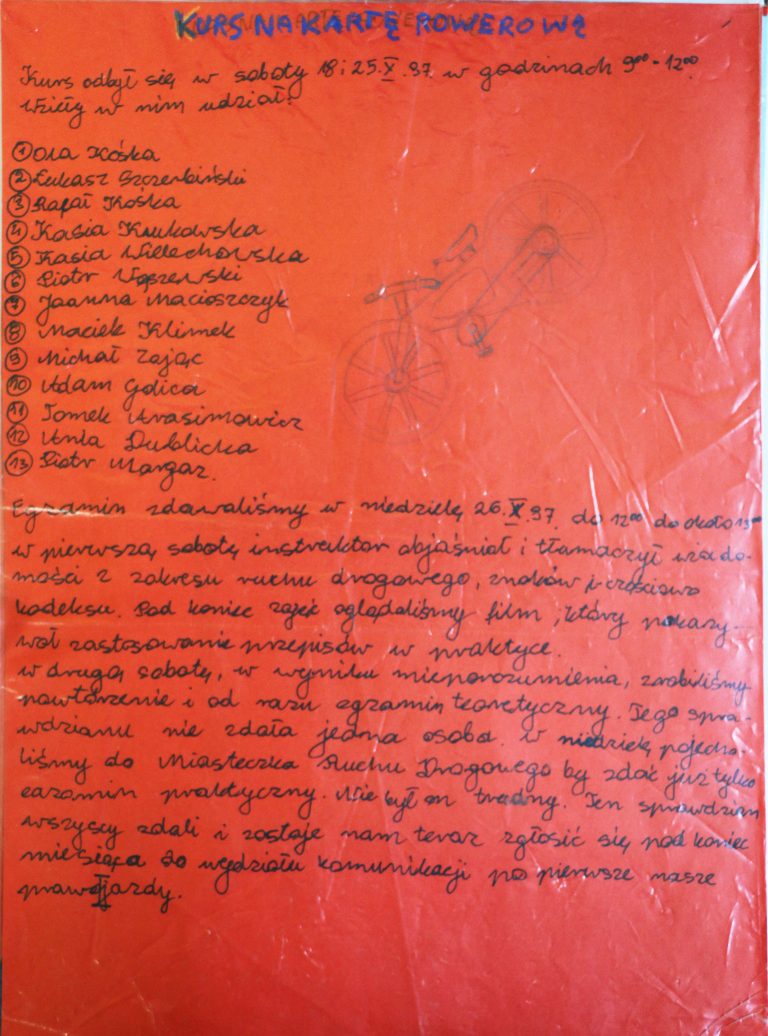 KURS NA KARTĘ ROWEROWĄ
Kurs odbył się w soboty 18 i 25.X.97 w godzinach 9⁰⁰-12⁰⁰.
Wzięły w nim udział:
① Ola Kośka
② Łukasz Szczerbiński
③ Rafał Kośka
④ Kasia Krukowska
⑤ Kasia Wielechowska
⑥ Piotr Wąszewski
⑦ Joanna Macioszczyk
⑧ Maciek Klimek
⑨ Michał Zając
⑩ Adam Golica
⑪ Tomek Arasimowicz
⑫ Ania Dublicka
⑬ Piotr Margaz.
Egzamin zdawaliśmy w niedzielę 26.X.97 do 12⁰⁰ do około 13⁰⁰
w pierwszą sobotę instruktor objaśniał i tłumaczył wiado-
mości z zakresu ruchu drogowego, znaków i częściowo
kodeksu. Pod koniec zajęć oglądaliśmy film, który pokazy-
wał zastosowanie przepisów w praktyce.
w drugą sobotę, w wyniku nieporozumienia, zrobiliśmy
powtórzenie i od razu egzamin teoretyczny. Jego spra-
wdzianu nie zdała jedna osoba. W niedzielę pojecha-
liśmy do Miasteczka Ruchu Drogowego by zdać już tylko
egzamin praktyczny. Nie był on trudny. Ten sprawdzian
wszyscy zdali i zostaje nam teraz zgłosić się pod koniec
miesiąca do wydziału komunikacji po pierwsze nasze
prawo jazdy.